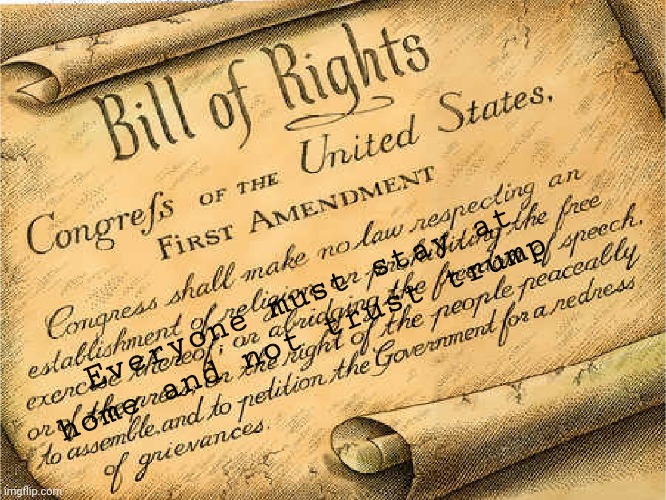 Bill of Rights
Congreſs OF THE United States,
FIRST AMENDMENT
Congress shall make no law respecting an
establishment of religion, or prohibiting the free
exercise thereof; or abridging the freedom of speech,
or of the press; or the right of the people peaceably
to assemble, and to petition the Government for a redress
of grievances.
Everyone must stay at
home and not trust trump
imgflip.com